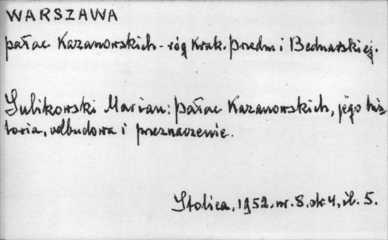 WARSZAWA
pałac Kazanowskich - róg Krak. Przedm i Bednarskiej.
Sulikowski Marian: pałac Kazanowskich, jego his
toria, odbudowa i przeznaczenie.
Stolica, 1952, nr. 8. str 4, il. 5.